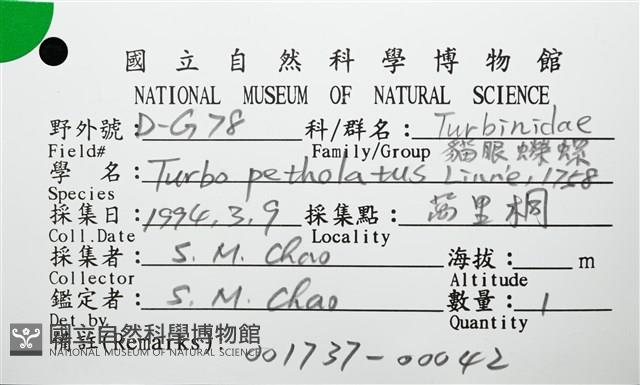 國立自然科學博物館
NATIONAL MUSEUM OF NATURAL SCIENCE
野外號：D-G78 科/群名：Turbinidae
Field# Family/Group 貓眼蠑螺
學 名：Turbo petholatus Linne, 1758
Species
採集日：1994.3.9 採集點：萬里桐
Coll.Date Locality
採集者：S. M. Chao 海拔：　m
Collector Altitude
鑑定者：S. M. Chao 數量：1
Det.by Quantity
備註(Remarks)：001737-00042
國立自然科學博物館
NATIONAL MUSEUM OF NATURAL SCIENCE